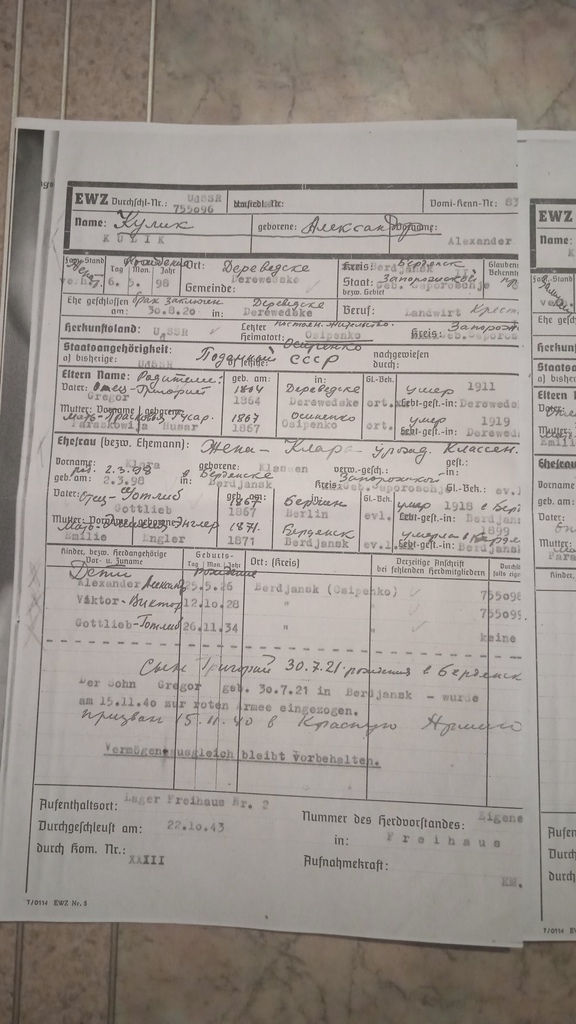 EWZ Durchschl.-Nr.: UdSSR 755096 Umsiedl.-Nr: Domi-Kenn-Nr: 83
Name: Кулик geborene: Александр Vorname:
KULIK Alexander
Fam.-Stand рождение Ort: Дереведске Kreis: Berdjansk Бердянск Glaubens Bekenntn
Жена Tag Mon. Jahr Derewedske Staat: Запорожской
verh. 6. 5. 98 Gemeinde: bez. Gebiet Geb. Saporoshje
Ehe geschlossen брак заключен Деревидске Beruf: Landwirt Крест
am: 30.8.20 in: Derewedske
Herkunftsland: UdSSR Letzter Heimatort: Осипенко Osipenko Kreis: Запорож
Geb. Sapoross
Staatsangehörigkeit: Поданный СССР nachgewiesen
a) bisherige: UdSSR durch:
Eltern Name: Родители: geb. am: in: Gl.-Bek.:
Vater: Отец-Григорий 1864 Деревидске умер 1911
Gregor 1864 Derewedske ort. Gebt-gest.-in: Dereweds
Mutter: Vorname geborene 1867 Осипенко умер 1919
Мать-Прасковия Гусар.
Paraskowija Husar 1867 Osipenko ort. Gebt-gest.-in: Derewed
Ehefrau (bezw. Ehemann): Жена - Клара - урожд. Классен.
Vorname: Klara geborene: Klassen verw.-gesch.: gest.:
род. 2.3.98 в Бердянске Запорожской
geb. am: 2.3.98 in: Berdjansk Kreis: Geb. Saporoschje Gl.-Bek.: ev.
Vater: Отец-Готлиб geb. am: 1867 Берлин Gl.-Bek. умер 1918 в Бер
Gottlieb 1867 Berlin evl. Gebt-gest.-in: Berdjans
Mutter: Vorname geborene Энглер 1871. Бердянск умерла в Бердя
1899
Emilie Engler 1871 Berdjansk ev.l. Gebt-gest.-in: Berdjans
Kinder, bezw. Herdangehörige Geburts- Ort: (Kreis) Derzeitige Anschrift
Vor- u. Zuname Tag Mon. Jahr bei fehlenden Herdmitgliedern
Дети рождение
Alexander Александр 25.5.26 Berdjansk (Osipenko) 755098
Viktor-Виктор 12.10.28 " 75509
Gottlieb-Готлиб 26.11.34 " keine
Сын Григорий 30.7.21 рождения в Бердянск
Der Sohn Gregor geb. 30.7.21 in Berdjansk - wurde
am 15.11.40 zur roten Armee eingezogen.
призван 15.11.40 в Красную Армию
Vermögensausgleich bleibt vorbehalten.
Aufenthaltsort: Lager Freihaus Nr. 2
Nummer des Herdvorstandes: Eigene
Durchgeschleust am: 22.10.43
in: Freihaus
durch Kom. Nr.: XXIII
Aufnahmekraft: KM.
T/0114 EWZ Nr. 5
EWZ
Name:
K